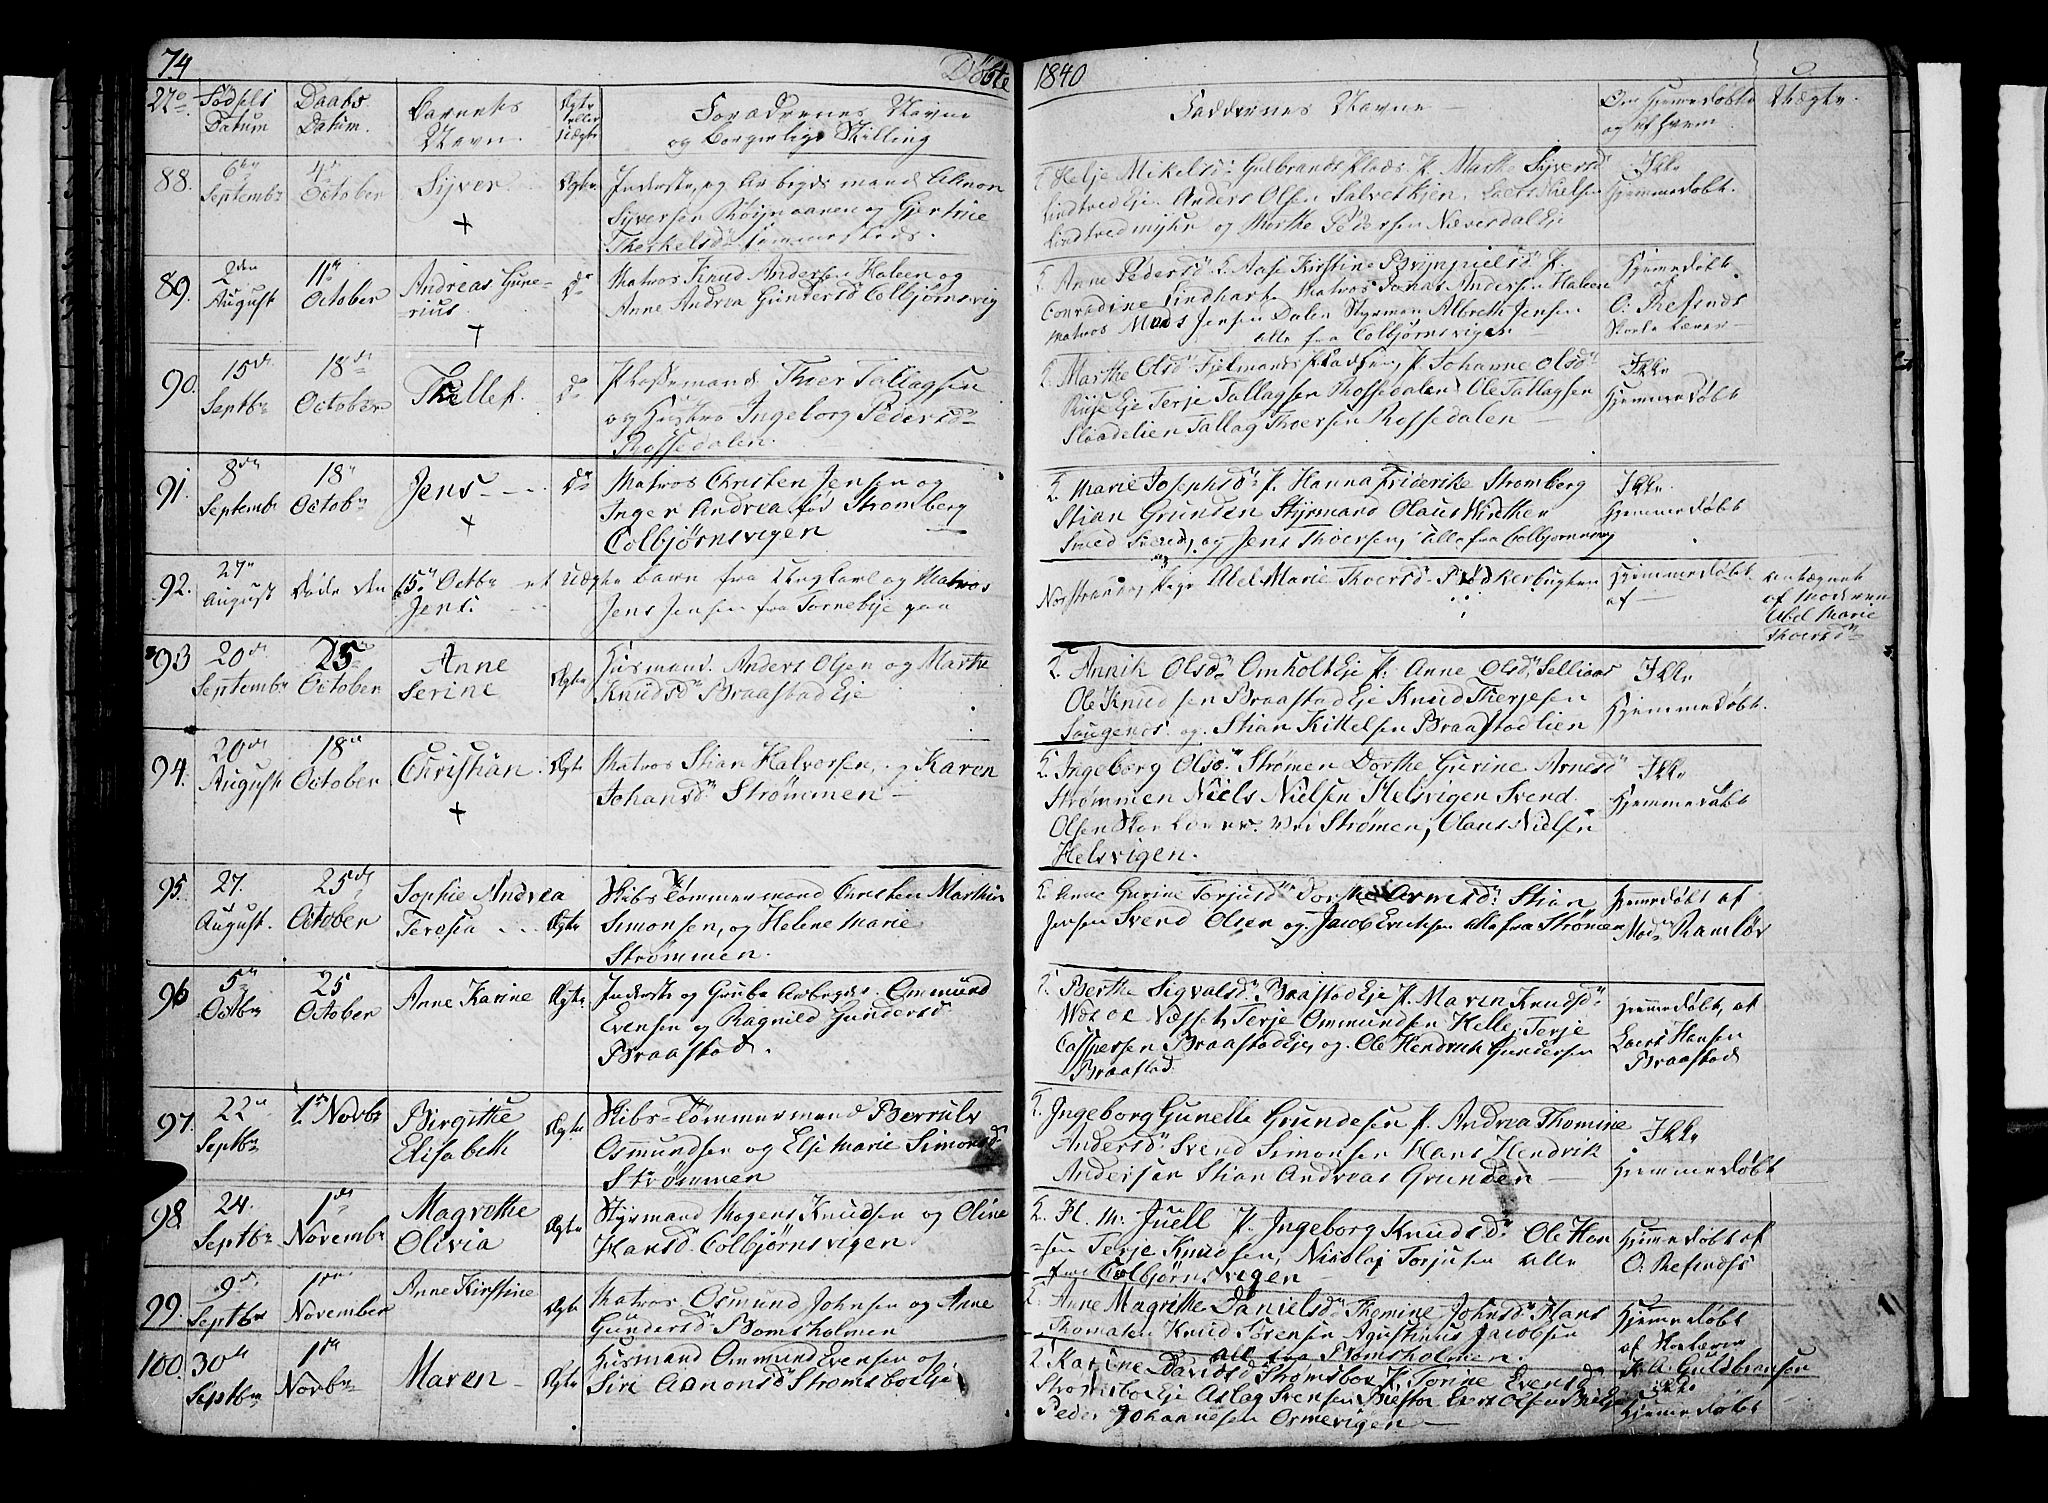 74
Døbte
1840
No
Fødsels Datum
Daabs Datum.
Barnets Navn
Ægte eller Uægte
Forældrenes Navne
og Borgerlige Stilling
Faddernes Navne
Om Hjemmedøbte
og af hvem
Uægte.
88.
6te Septembr
4de October
Syver
Ægte
Inderste og Arbeidsmand Aanon
Syversen Røijnaaren og Gjertrue
Therkelsd. sammesteds.
Helje Mikelsd. Gulbrands Plads P. Marthe Syversd
Lindtved Eje. Anders Olsen Salvetkjen, Laers Nielsen
Lindtvedmyhr og Marthe Pedersen Næversdal Eje
Ikke
hjemmedøbt.
89.
2den August
11te October
Andreas Gune-
rius.
Do
Matros Knud Andersen Haleen og
Anne Andrea Gundersd Colbjørnsvig
Anne Pedersd. Aase Kirstine Brynnielsd P.
Conradine Lindhart Matros Jonas Andersen Haleen
Matros Mads Jensen Dalen Styrman Albreth Jensen
alle fra Colbjørnsvigen
Hjemedøbt
af
O. Refsnds
Skole Lærer
90.
15de Septbr
18de October
Thellef.
Do
Pladsemand Thoer Tallagsen
og Hustru Ingeborg Pedersd
Rossedalen.
Marthe Olsd Fjelmands Pladsen, P. Johanne Olsd
Riise Eje Terje Tallagsen Rossedalen Ole Tallagsen
Sloadelien Tallag Thoersen Rossedalen
Ikke
hjemmedøbt
91.
8de Septembr
18 Octobr
Jens
Do
Matros Christen Jensen og
Inger Andrea fød Stromberg
Colbjørnsvigen
Marie Josephsd. P. Hanna Friderike Stromberg
Stian Grunden Styrmand Olaus Winther
Svend Svends. og Jens Thoersen, alle fra Colbjørnsvig
Ikke.
hjemmedøbt
92.
27 August
døde den 15 Octbr et Uægte barn fra Ungkarl og Matros
Jens.
Jens Jensen fra Torneby
og Pige Abel Marie Thoersd
hjemmedøbt
af
Abel Marie
Thoersd
93
20de Septembr
25de October
Anne
Serine
Ægte
Husmand. Anders Olsen og Marthe
Knudsd. Braastad Eje
Annik Olsd. Omholt Eje P. Anne Olsd. Selliaas
Ole Knudsen Braastad Eje Knud Therjesen
Laugenes. og Stian Kittelsen Braastadlien
Ikke
hjemmedøbt.
94.
20de August
18de October
Christian.
Ægte
Matros Stian Halvorsen, og Karen
Johansd. Strømmen
Ingeborg Olsd. Strømen Dorthe Gurine Arnesd
Strømmen Niels Nielsen Helsvigen Svend
Olsen Skole Lærer ved Strømen, Olaus Nielsen
Helsvigen.
Ikke
hjemmedøbt
95.
27. August.
25de October
Sophie Andrea
Teresia
Ægte
Skibs Tømmermand Christen Marthin
Simonsen, og Helene Marie
Strømmen.
Anne Gurine Torjusd Dorthe Ormsd. Stian
Jensen Svend Olsen og Jacob Ericksen alle fra Strømen
Hjemedøbt af
Mad. Ramløv
96
5te Octbr
25 October
Anne Karine
Ægte
Inderste og Grube Arbeider. Ommund
Evensen og Ragnild Gundersd
Braastad.
Berthe Sigvalsd. Braastad Eje P. Maren Knudsd.
Næsset, Terje Ommundsen Helle, Terje
Caspersen Braastad Eje, og Ole Hendrik Gundersen
Braastad
hjemedøbt, af
Laers Hansen
Braastad
97.
22 Septbr
1te Novbr
Birgithe
Elisabeth
Ægte
Skibs-Tømmermand Berruls
Osmundsen og Else Marie Simonsd
Strømmen
Ingeborg Gunelle Grundesen P. Andrea Thomine
Andersd. Svend Simonsen Hans Hendrik
Andersen Stian Andreas Grunden
Ikke
hjemmedøbt
98
24. Septbr
1te Novembr
Magrethe
Olivia
Ægte
Styrmand Mogens Knudsen og Oline
Hansd. Colbjørnsvigen
H. M. Juell P. Ingeborg Knudsd. Ole Han
-sen Terje Knudsen, Nicolaj Torjusen alle
fra Colbjørnsvigen
Hjemedøbt af
O. Refsnds
99.
9de Septbr
1te November
Anne Kirstine
Ægte
Matros Osmund Johnsen og Anne
Gundersd. Bomsholmen
Anne Magrethe Danielsd Themine Johnsd. Hans
Thomasen Knud Sørensen Agustinus Jacobsen
alle fra Bomsholmen.
Hjemmedøbt
af Skolærer
A. Guldbransen
100.
30te Septbr
1te Novbr
Maren
Ægte
Husmand Ommund Evensen og
Siri Aanonsd Strømsbo Eje
Karine Davidsd Strømsboe P. Tonne Evensd
Strømsbo Eje Aslag Svensen Bie Lars Olsen Bie
Peder Johannesen Osmevigen
Ikke
hjemmedøbt